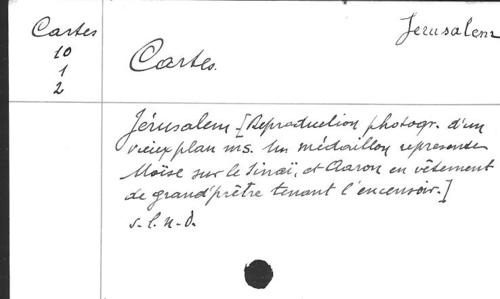 Cartes
10
1
2
Jerusalem
Cartes.
Jérusalem [Reproduction photogr. d'un
vieux plan ms. Un médaillon represente
Moïse sur le Sinaï, et Aaron en vêtement
de grand'prêtre tenant l'encensoir.]
s. l. n. d.